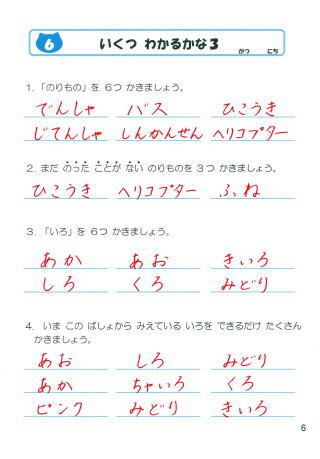 6 いくつ わかるかな3 がつ にち
1. 「のりもの」を 6つ かきましょう。
でんしゃ バス ひこうき
じてんしゃ しんかんせん ヘリコプター
2. まだ のった ことが ない のりものを 3つ かきましょう。
ひこうき ヘリコプター ふね
3. 「いろ」を 6つ かきましょう。
あか あお きいろ
しろ くろ みどり
4. いま この ばしょから みえている いろを できるだけ たくさん
かきましょう。
あお しろ みどり
あか ちゃいろ くろ
ピンク みどり きいろ
6